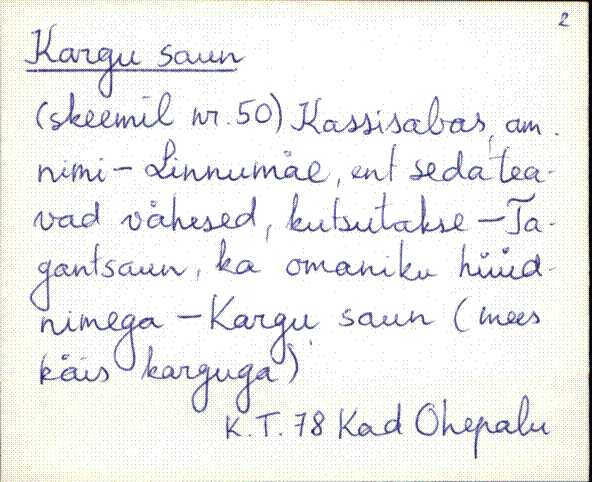 2
Kargu saun
(skeemil nr. 50) Kassisabas, am.
nimi - Linnumäe, ent seda tea-
vad vähesed, kutsutakse - Ta-
gantsaun, ka omaniku hüüd-
nimega - Kargu saun (mees
käis karguga)
K.T. 78 Kad Ohepalu